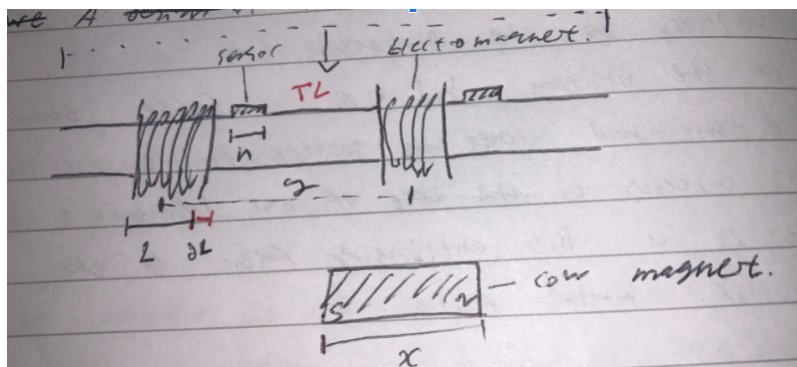 A sensor
sensor
Electromagnet.
TL
n
y
L
∂L
S
N
cow magnet.
x